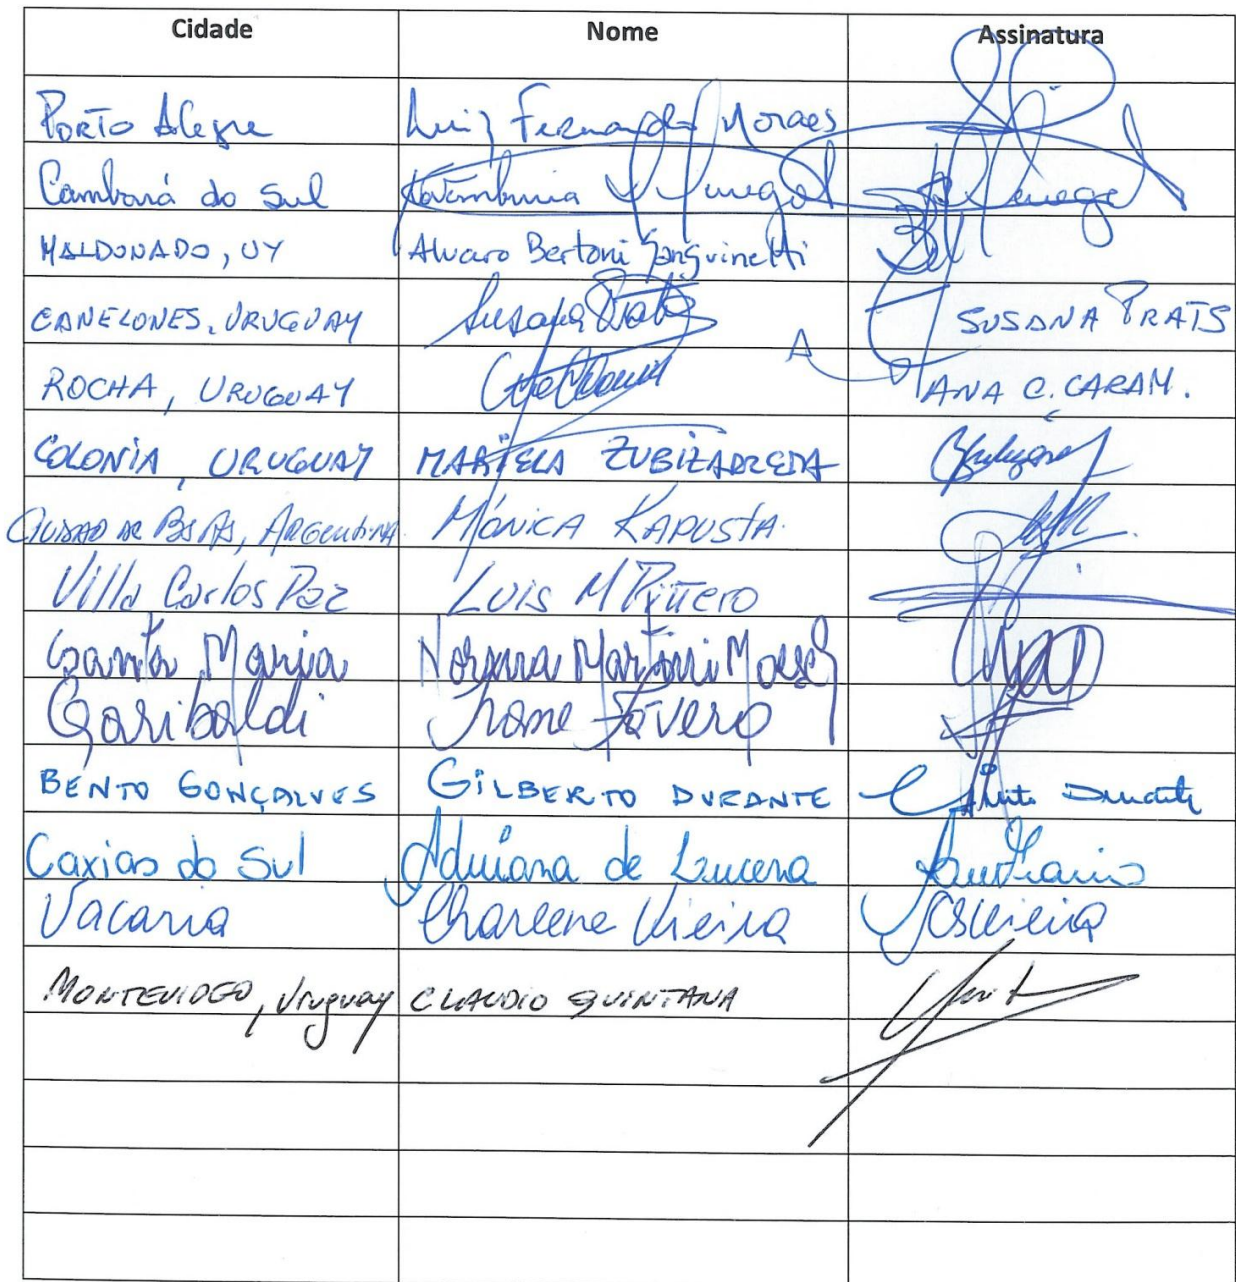 Cidade Nome Assinatura
Porto Alegre Luiz Fernando Moraes
Cambará do Sul
MALDONADO, UY Alvaro Bertoni Sanguinetti
CANELONES, URUGUAY Susana Prats SUSANA PRATS
ROCHA, URUGUAY ANA C. CARAM.
COLONIA, URUGUAY MARIELA ZUBIZARRETA
CIUDAD DE BS AS, ARGENTINA MÓNICA KAPUSTA.
Villa Carlos Paz LUIS M
Santa Maria Norma Martini Moesch
Garibaldi Ivane Fávero
BENTO GONÇALVES GILBERTO DURANTE
Caxias do Sul Adriana de Lucena
Vacaria Charlene Vieira CSVieira
MONTEVIDEO, Uruguay CLAUDIO QUINTANA